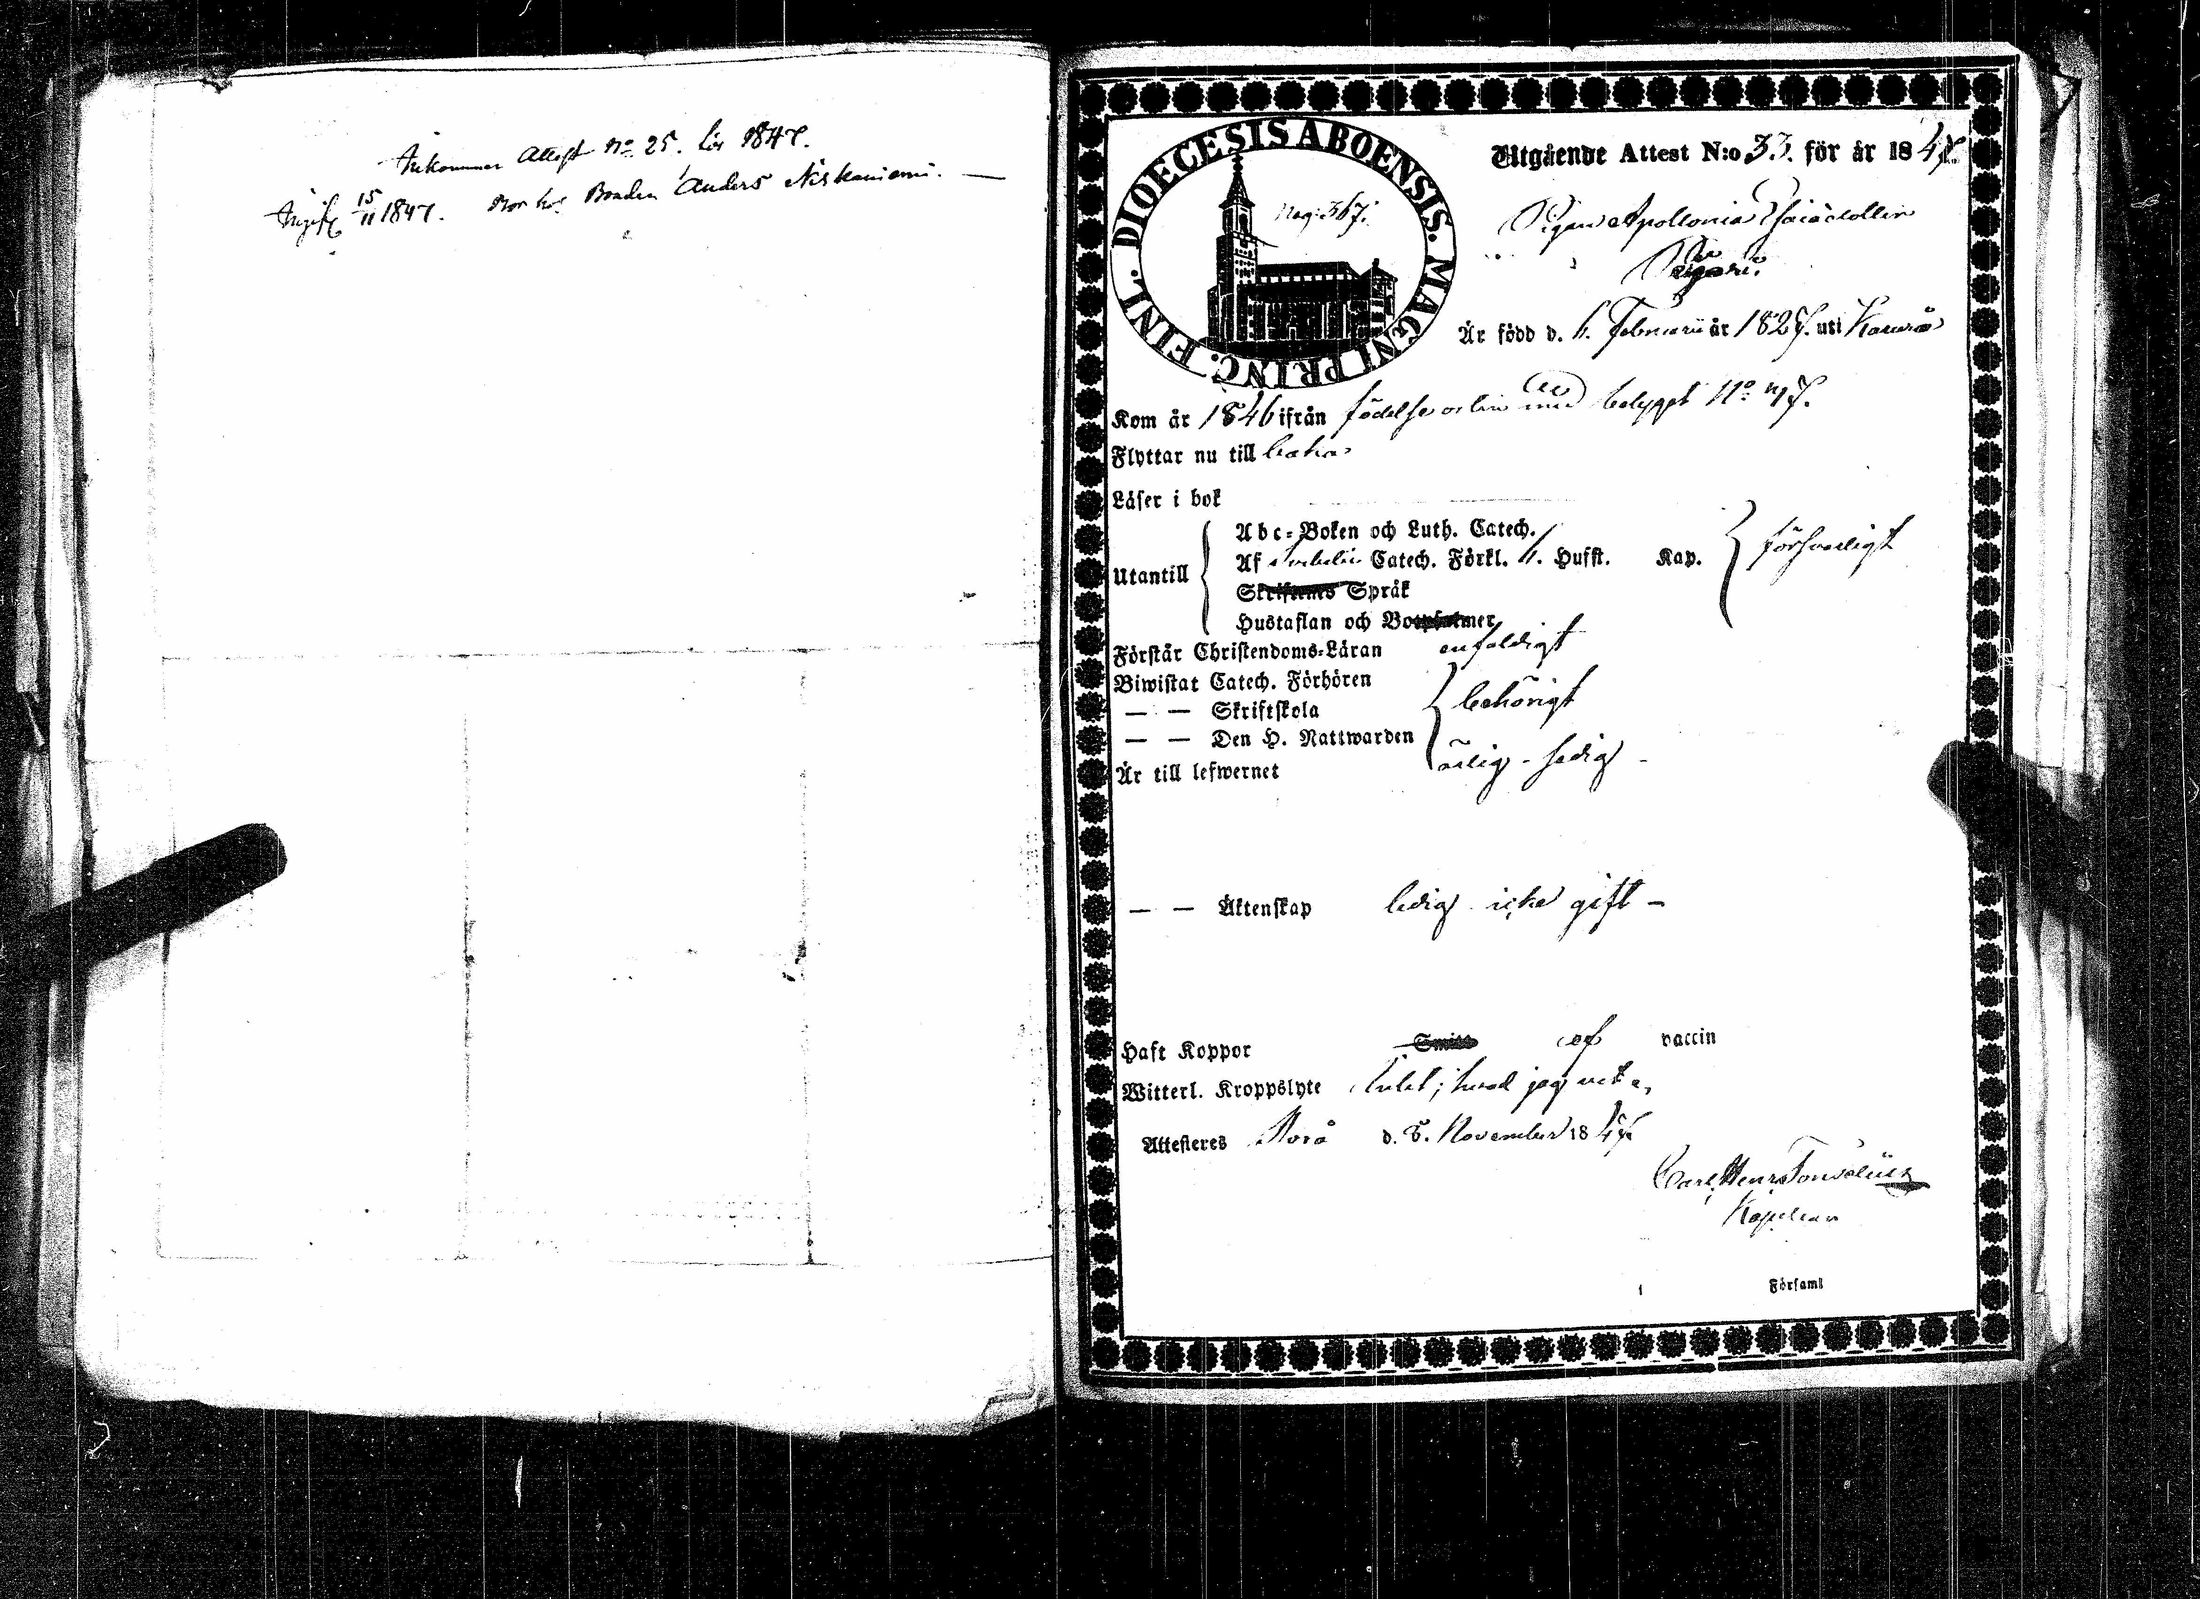 Inkommen Attest No 25. för 1847.
15/11 1847. Bor hos Bonden Anders Niskaniemi. —
DIOECESIS ABOENSIS. MAGNI PRINC. FINL.
Pag: 367.
Utgående Attest N:o 33. för år 1847.
Pigan Apollonia Esaiædotter
Är född d. 6. Februarii år 1827. uti
Kom år 1846 ifrån födelseorten med betyget No 17.
Flyttar nu till
Läser i bok
Utantill
Abc-Boken och Luth. Catech.
Af Svebelii Catech. Förkl. 1. Hufst. Kap. försvarligt
Skriftens Språk
Hustaflan och Botpsalmer
Förstår Christendoms-Läran enfaldigt
Biwistat Catech. Förhören
— — Skriftskola behörigt
— — Den H. Nattwarden
Är till lefwernet ärlig - sedig -
— — Äktenskap ledig icke gift —
Haft Koppor Smitt af vaccin
Witterl. Kroppslyte Intet; hvad jag vet.
Attesteres d. 8. November 1847
Carl Henr
Kapellan
Församl